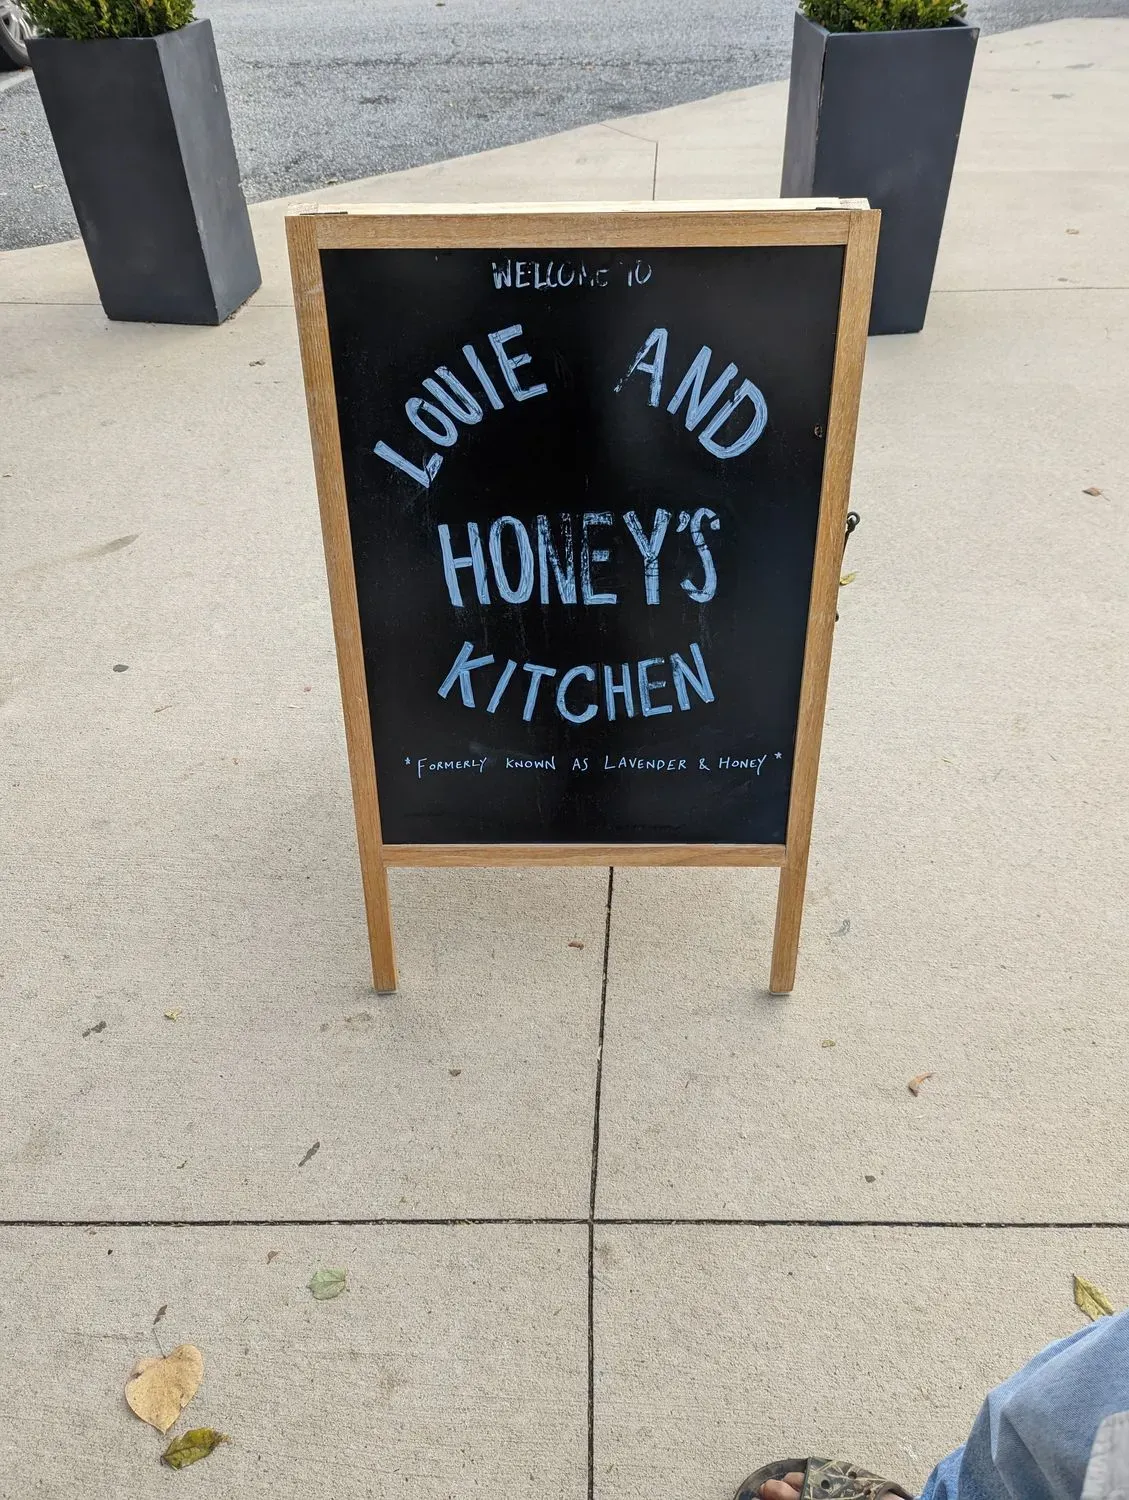 WELCOME TO
LOUIE AND
HONEY'S
KITCHEN
*FORMERLY KNOWN AS LAVENDER & HONEY*